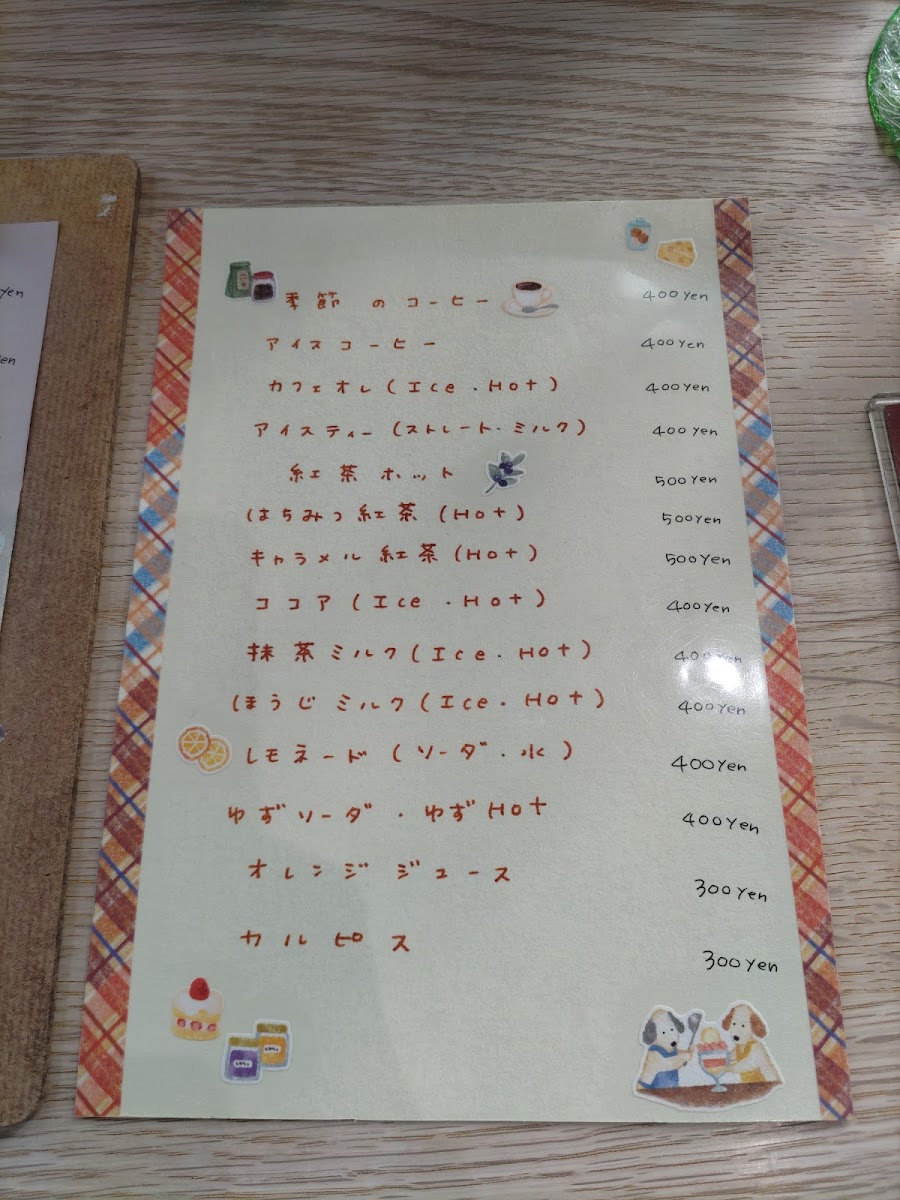 季節のコーヒー 400yen
アイスコーヒー 400yen
カフェオレ(Ice・Hot) 400yen
アイスティー(ストレート・ミルク) 400yen
紅茶ホット 500yen
はちみつ紅茶(Hot) 500yen
キャラメル紅茶(Hot) 500yen
ココア(Ice・Hot) 400yen
抹茶ミルク(Ice・Hot) 400yen
ほうじミルク(Ice・Hot) 400yen
レモネード(ソーダ・水) 400yen
ゆずソーダ・ゆずHot 400yen
オレンジジュース 300yen
カルピス 300yen
yen
en